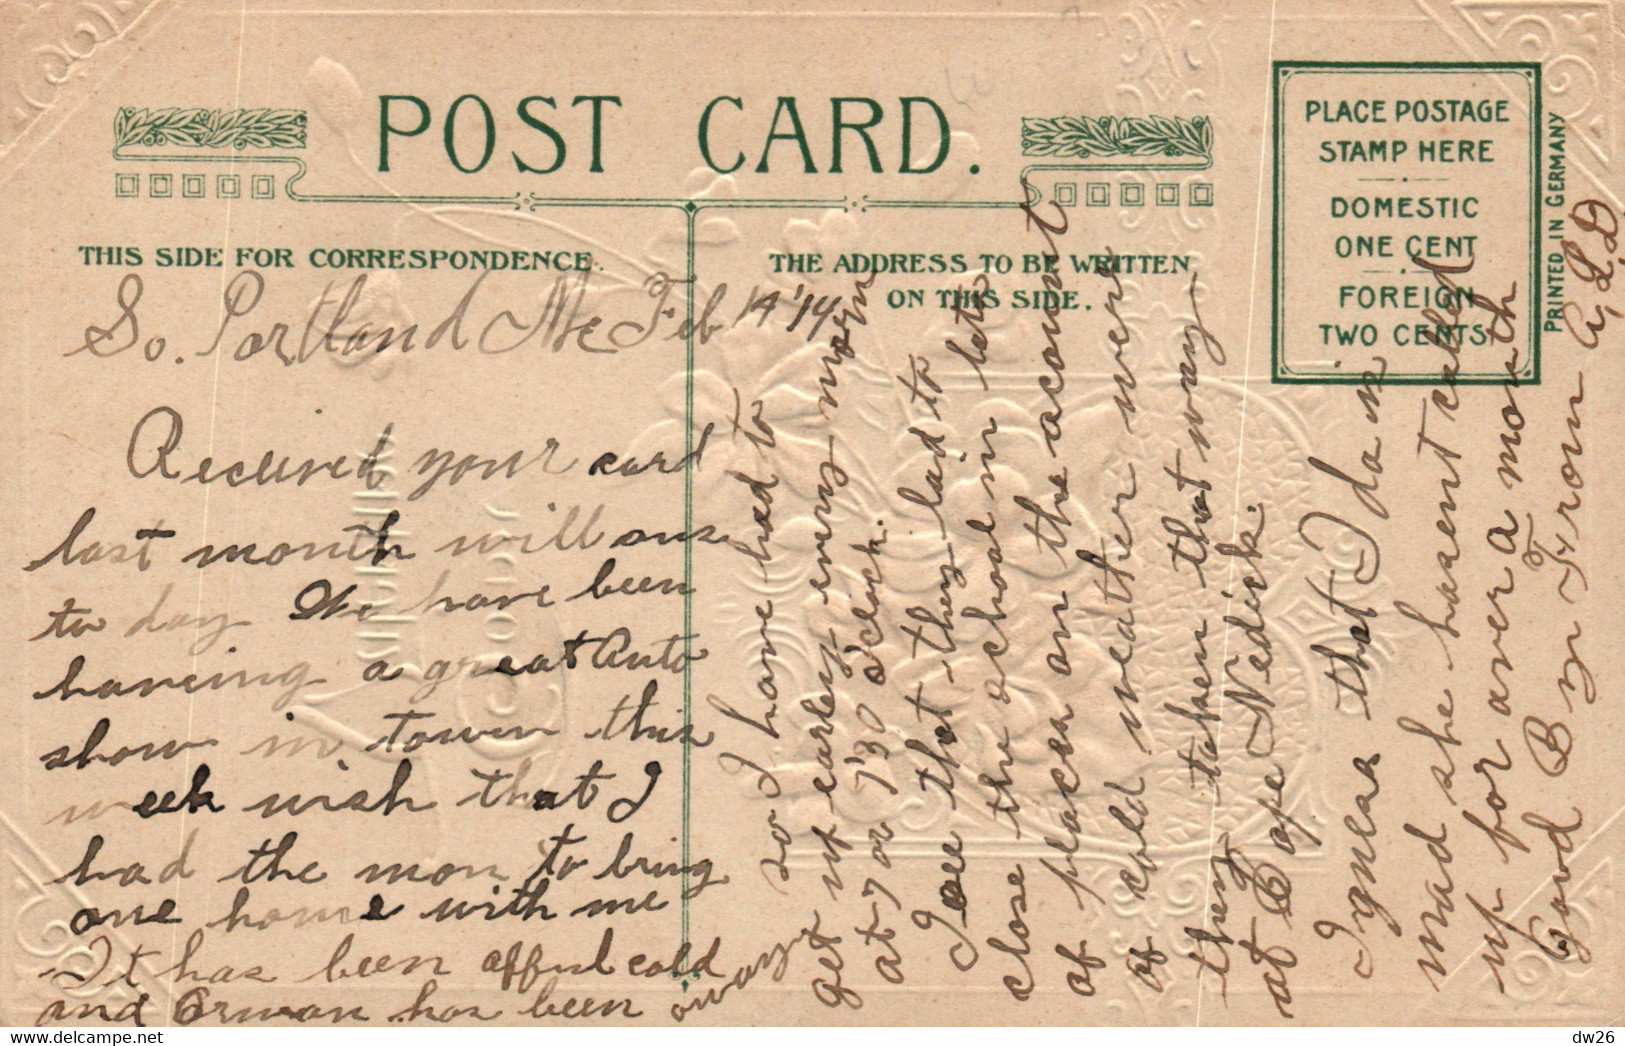 POST CARD.
THIS SIDE FOR CORRESPONDENCE.
THE ADDRESS TO BE WRITTEN
ON THIS SIDE.
PLACE POSTAGE
STAMP HERE
DOMESTIC
ONE CENT
FOREIGN
TWO CENTS
PRINTED IN GERMANY
So. Portland Me Feb 14 '14
Received your card
last month will ans
to day We have been
haveing a great Auto
show in town this
week wish that I
had the mon to bring
one home with me
It has been afful cold
and Orman has been away
so I have had to
get up earley every morn
at 7 or 7'30 o'clock.
I see that they had to
close the school in lots
of places on the acount
of cold weather were
they taken that way
at Cape Nedick.
I gues that I da in
mad she hasent called
up for over a month
Good By From G, L, D
dw26